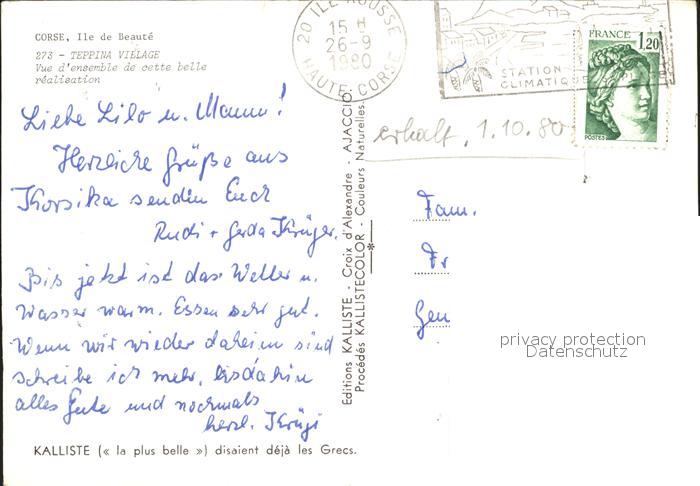 CORSE, Ile de Beauté
273 - TEPPINA VILLAGE
Vue d'ensemble de cette belle
réalisation
Liebe Lilo u. Mann!
Herzliche Grüße aus
Korsika senden Euch
Rudi + Gerda Krüger.
Bis jetzt ist das Wetter u.
Wasser warm. Essen sehr gut.
Wenn wir wieder daheim sind
schreibe ich mehr, bis dahin
alles Gute und nochmals
herzl. Krügi
KALLISTE (« la plus belle ») disaient déjà les Grecs.
Editions KALLISTE - Croix d'Alexandre - AJACCIO
Procédés KALLISTECOLOR - Couleurs Naturelles
20 ILE ROUSSE
15 H
26-9
1980
HAUTE CORSE
STATION
CLIMATIQUE
FRANCE
1,20
POSTES
erhalt. 1.10.80
Fam.
Fr
Gen
privacy protection
Datenschutz